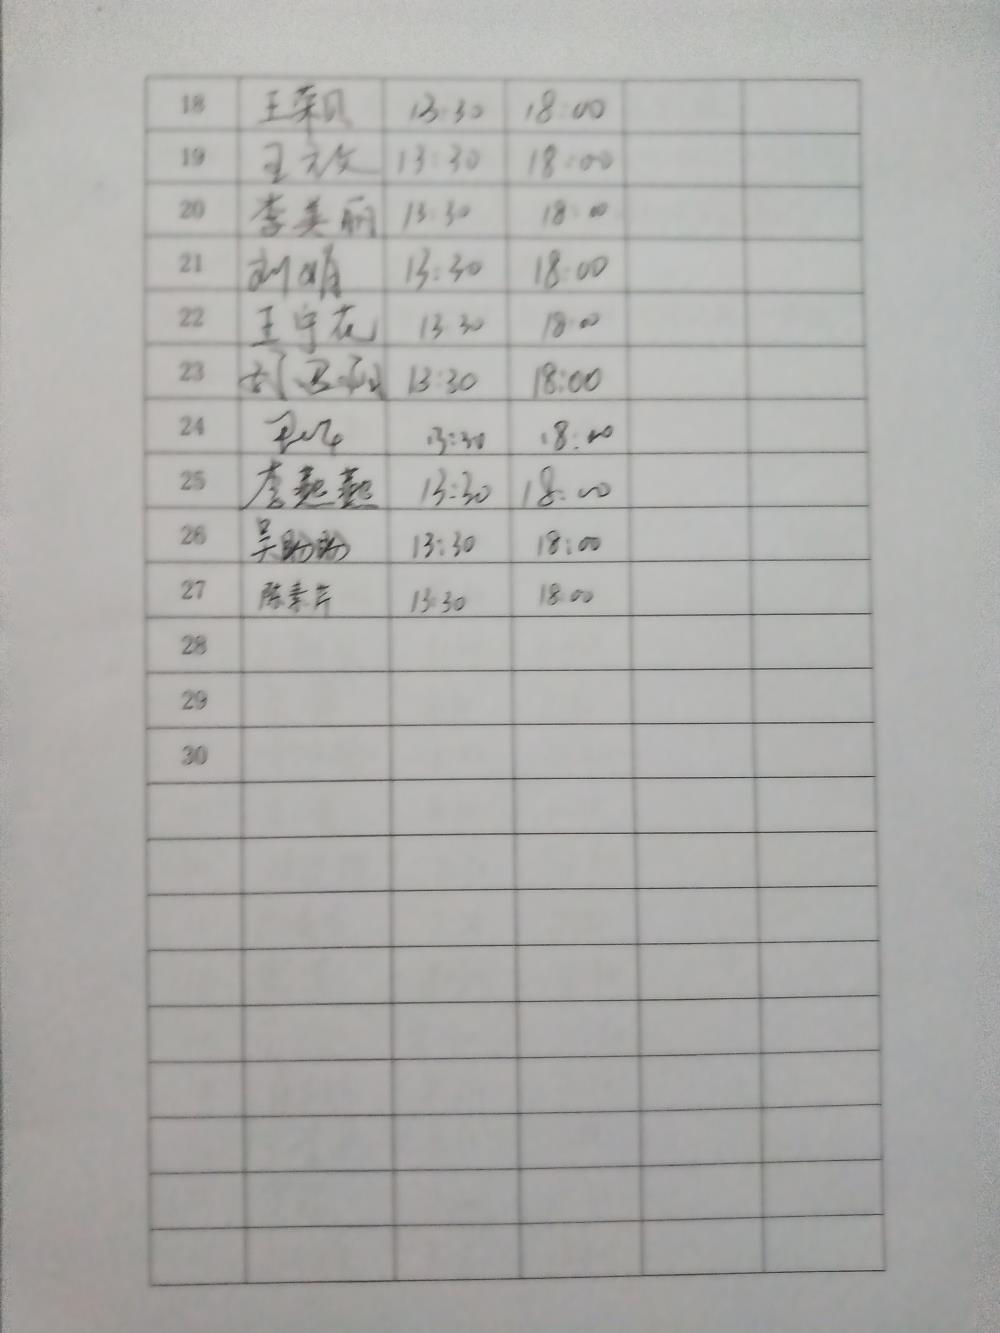 18 王荣凤 13:30 18:00
19 王 13:30 18:00
20 李美丽 13:30 18:00
21 刘明 13:30 18:00
22 王守花 13:30 18:00
23 13:30 18:00
24 13:30 18:00
25 李艳艳 13:30 18:00
26 吴盼盼 13:30 18:00
27 陈素芹 13:30 18:00
28
29
30